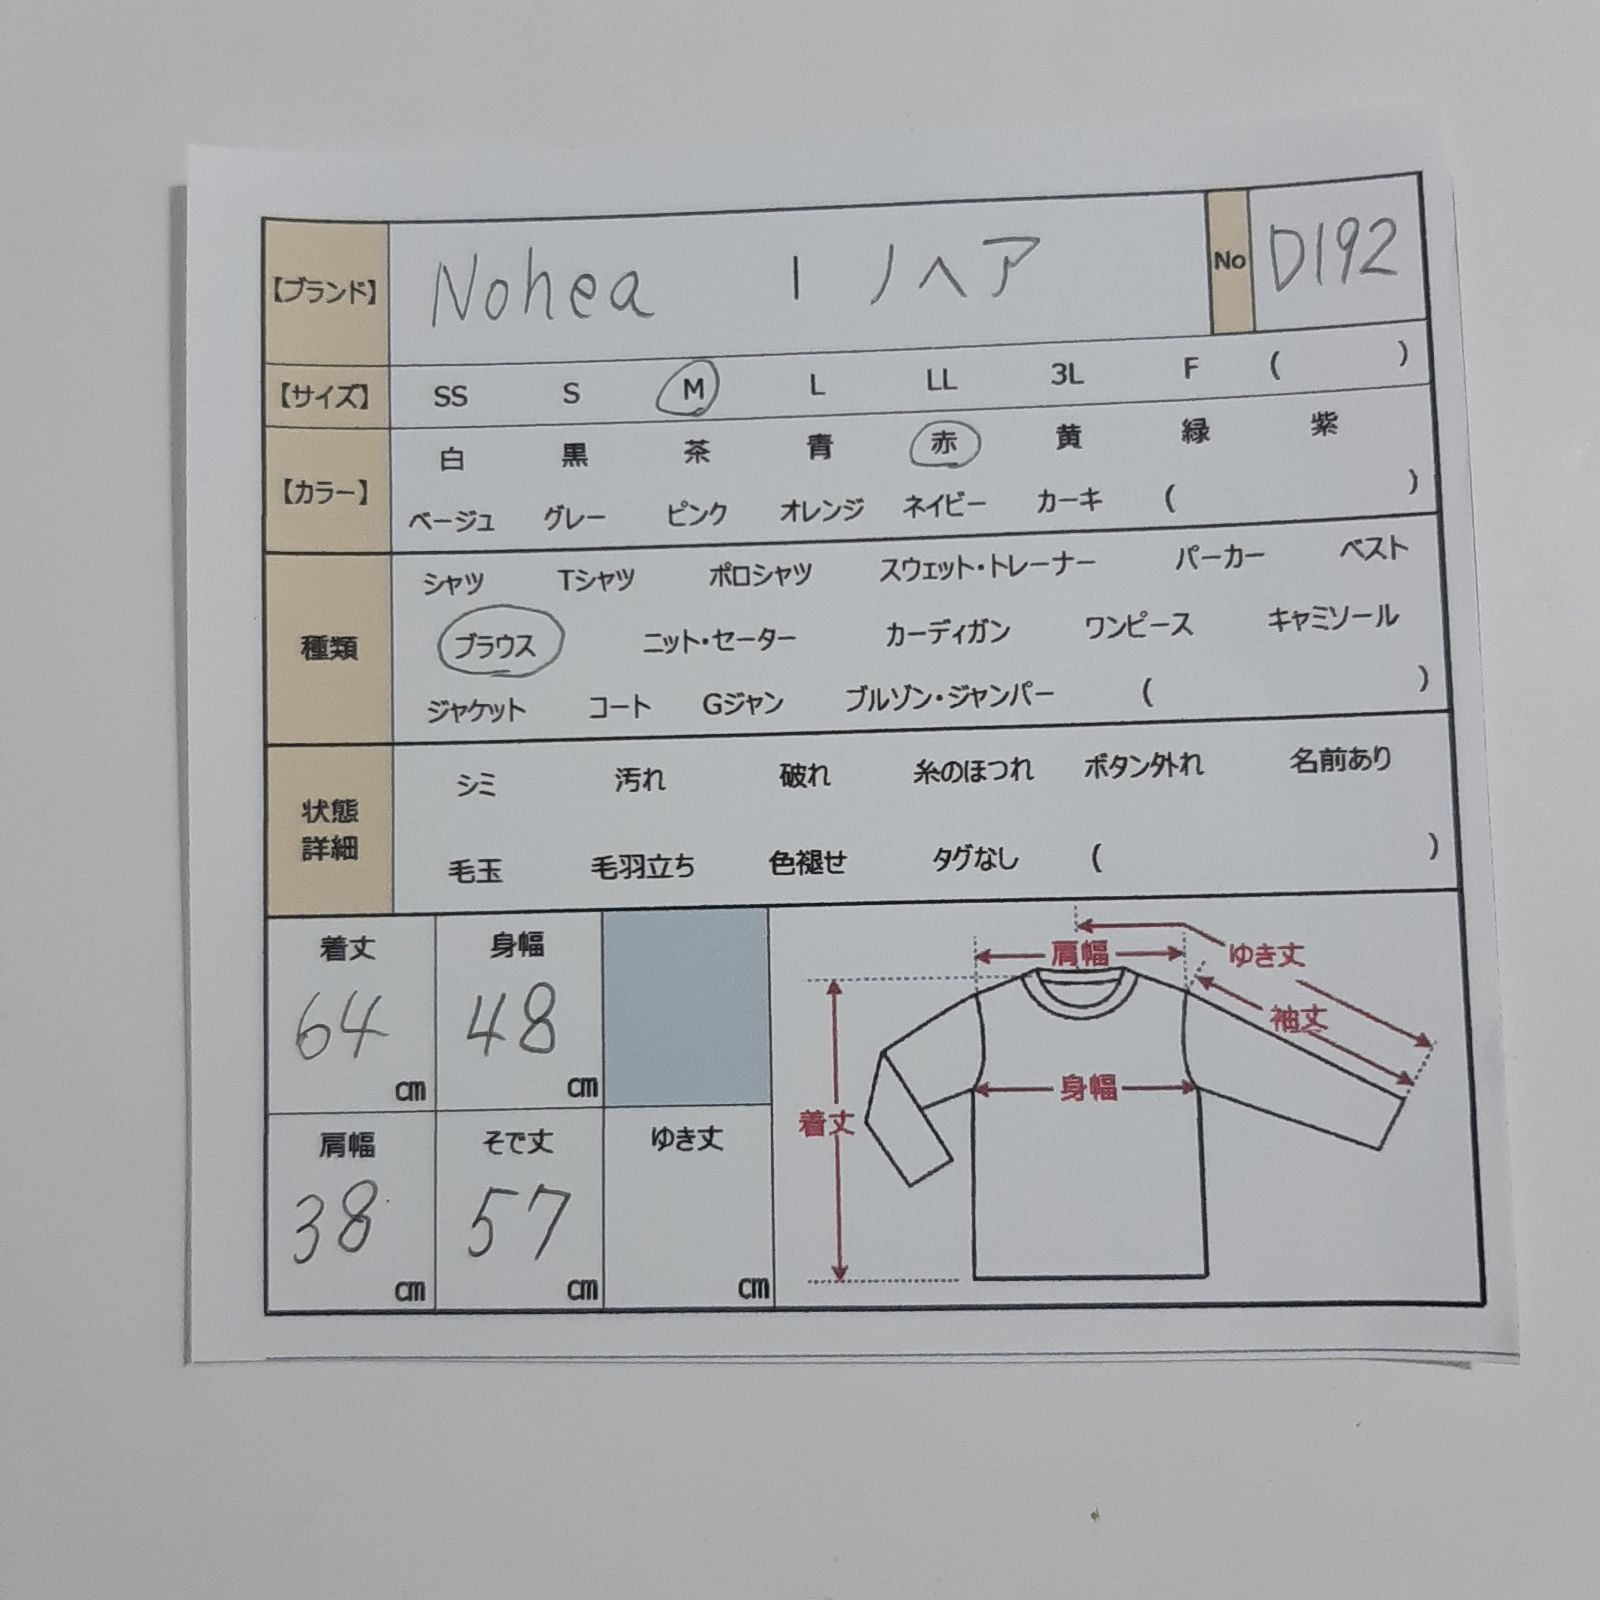 【ブランド】 Nohea | ノヘア No D192
【サイズ】 SS S M L LL 3L F ( )
【カラー】 白 黒 茶 青 赤 黄 緑 紫
ベージュ グレー ピンク オレンジ ネイビー カーキ ( )
種類 シャツ Tシャツ ポロシャツ スウェット・トレーナー パーカー ベスト
ブラウス ニット・セーター カーディガン ワンピース キャミソール
ジャケット コート Gジャン ブルゾン・ジャンパー ( )
状態 シミ 汚れ 破れ 糸のほつれ ボタン外れ 名前あり
詳細 毛玉 毛羽立ち 色褪せ タグなし ( )
着丈 身幅
64 cm 48 cm
肩幅 そで丈 ゆき丈
38 cm 57 cm cm
肩幅 ゆき丈
袖丈
身幅
着丈